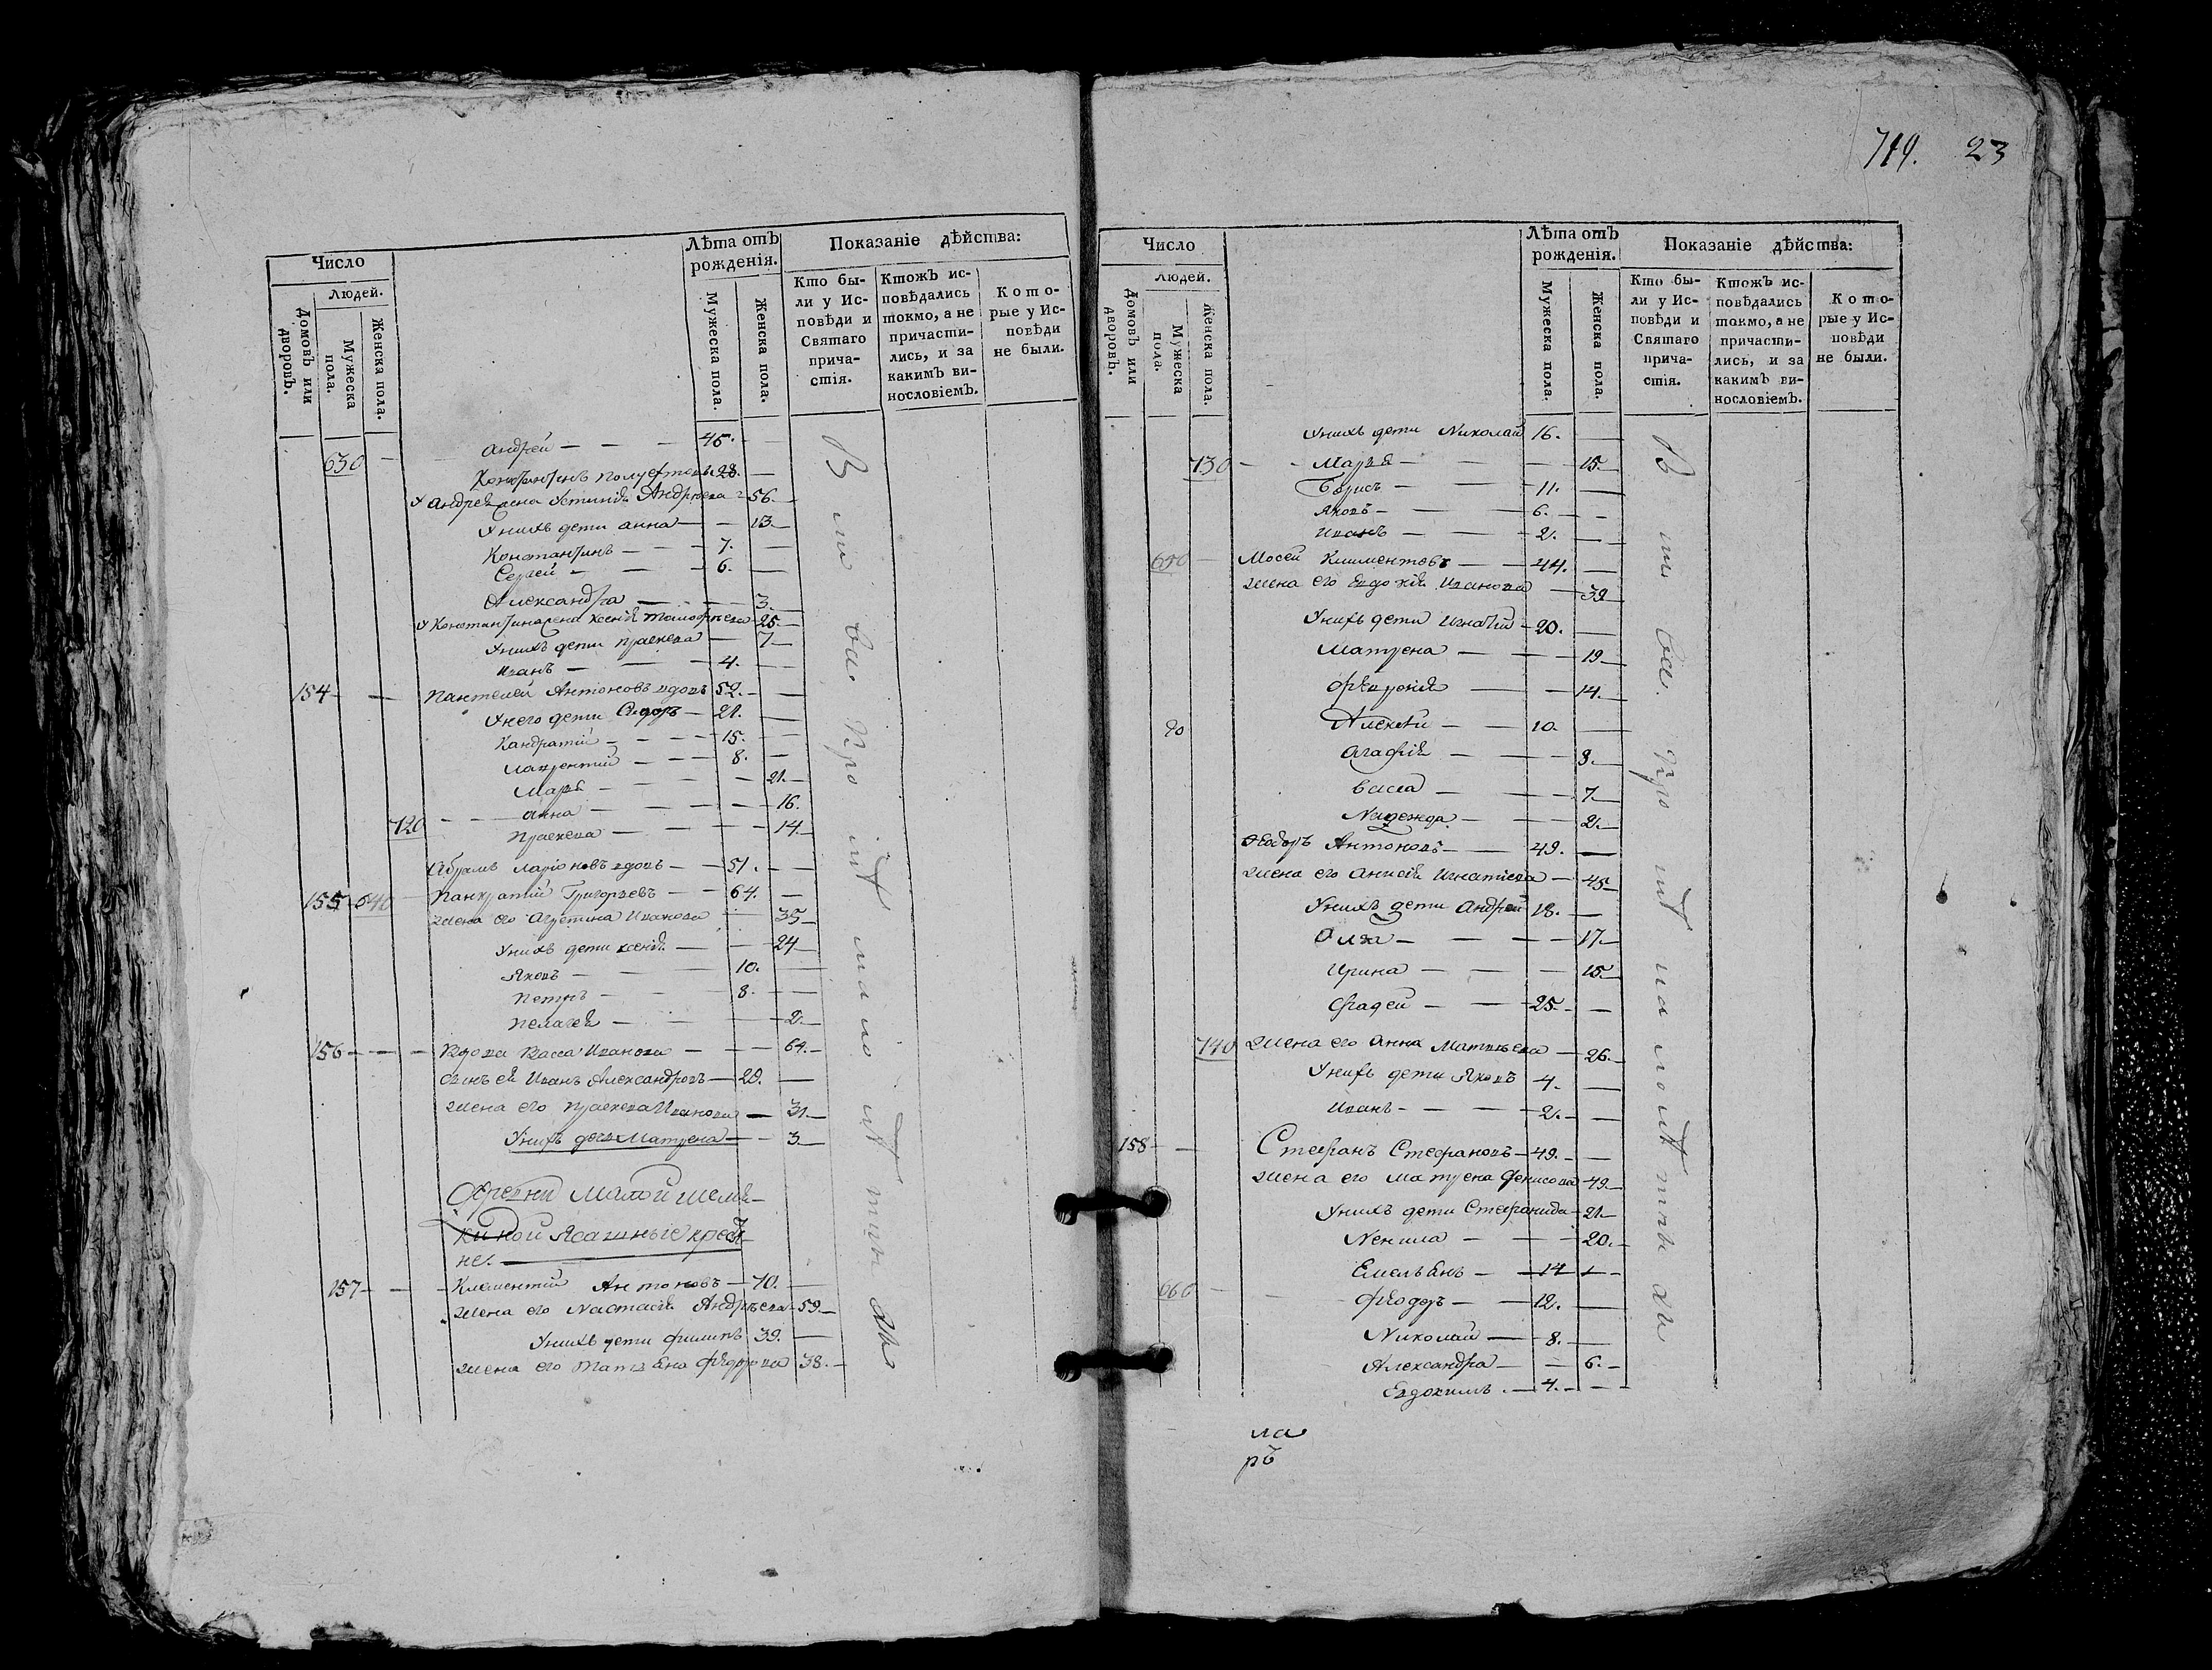 719. 23
Число
Людей.
Домовъ или дворовъ.
Мужеска пола.
Женска пола.
Лѣта отъ рожденія.
Мужеска пола.
Женска пола.
Показаніе дѣйства:
Кто бы-
ли у Ис-
повѣди и
Святаго
прича-
стія.
Ктожъ ис-
повѣдались
токмо, а не
причасти-
лись, и за
какимъ ви-
нословіемъ.
Кото-
рые у Ис-
повѣди
не были.
Андрей — 45.
630 Константинъ 28.
У Андрея жена Устинія Андреева 56.
У нихъ дети Анна — 13
Константинъ — 7.
Сергей — 6.
Александра — 3.
У Константина жена Ксенія Тимофеева 25.
У нихъ дети Праскева — 7
Иванъ — 4.
154 Пантелей Антоновъ вдовъ 52.
У него дети Сидоръ — 21.
Кандратій — 15.
Лаврентій — 8.
Марья — 21.
Анна — 16.
720 Праскева — 14
Абрамъ Ларіоновъ вдовъ — 51.
155 640 Панкратій Григорьевъ — 64.
жена его Агрепина Иванова 35
У нихъ дети Ксенія — 24
Яковъ — 10.
Петръ — 8.
Пелагея — 2.
156 Вдова Васса Иванова — 64.
сынъ ея Иванъ Александровъ — 29.
жена его Праскева Иванова — 31
У нихъ дочь Матрена — 3
Деревни Малой Шемя-
киной Ясашные крестья-
не.
157 Клементій Антоновъ — 70.
жена его Настасія Андреева 59.
У нихъ дети Филипъ 39.
жена его Татьяна Федорова 38.
Число
Людей.
Домовъ или дворовъ.
Мужеска пола.
Женска пола.
Лѣта отъ рожденія.
Мужеска пола.
Женска пола.
Показаніе дѣйства:
Кто бы-
ли у Ис-
повѣди и
Святаго
прича-
стія.
Ктожъ ис-
повѣдались
токмо, а не
причасти-
лись, и за
какимъ ви-
нословіемъ.
Кото-
рые у Ис-
повѣди
не были.
У нихъ дети Николай 16.
730 Марья — 15.
Борисъ — 11.
Яковъ — 6.
Иванъ — 2.
650 Мосей Климентовъ — 44.
жена его Евдокія Иванова 39
У нихъ дети Игнатій 20.
Матрена — 19
Февронія — 14.
Алексей — 10.
Агафія — 8.
Васса — 7.
Надежда — 2.
Федоръ Антоновъ — 49.
жена его Анисія Игнатіева — 45
У нихъ дети Андрей 18.
Олга — 17.
Ирина — 15.
Фадей — 25.
740 жена его Анна Матвеева — 26.
У нихъ дети Яковъ 4.
Иванъ — 2.
158 Стефанъ Стефановъ — 49.
жена его Матрена Денисова 49
У нихъ дети Стефанида 21
Ненила — 20.
Емельянъ — 14
660 Федоръ — 12.
Николай — 8.
Александра — 6.
Евдокимъ — 4.
ла
ръ